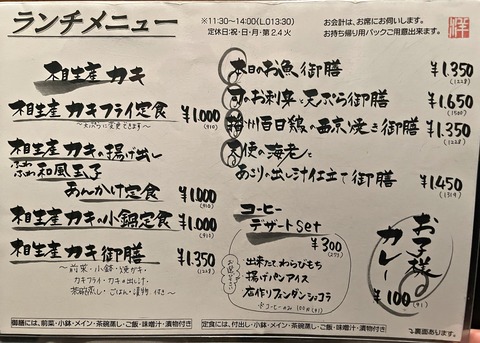 ランチメニュー
※11:30〜14:00(L.O13:30)
定休日:祝・日・月・第2.4火
お会計は、お席にお伺いします。
お持ち帰り用パックご用意出来ます。
相生産 カキ
相生産 カキフライ定食 ¥1,000
(910)
〜天ぷらに変更できます〜
相生産 カキの揚げ出し
ふわふわ和風玉子
あんかけ定食 ¥1,000
(910)
相生産 カキの小鍋定食 ¥1,000
(910)
相生産 カキ御膳 ¥1,350
(1228)
〜前菜・小鉢・焼ガキ・
カキフライ・カキの出し汁・
茶碗蒸し・ごはん・漬物 付き〜
本日のお魚御膳 ¥1,350
(1228)
旬のお刺身と天ぷら御膳 ¥1,650
(1500)
播州百日鶏の西京焼き御膳 ¥1,350
(1228)
天使の海老と
あさりの出し汁仕立て御膳 ¥1450
(1319)
コーヒー
デザートset
¥300
(273)
お選び下さい
出来たてわらびもち
揚げパンアイス
店作りフォンダンショコラ
※コーヒーのみ 100円(91)
お子様カレー
¥100
(91)
御膳には、前菜・小鉢・メイン・茶碗蒸し・ご飯・味噌汁・漬物付き
定食には、付出し・小鉢・メイン・茶碗蒸し・ご飯・味噌汁・漬物付き
裏面あります。